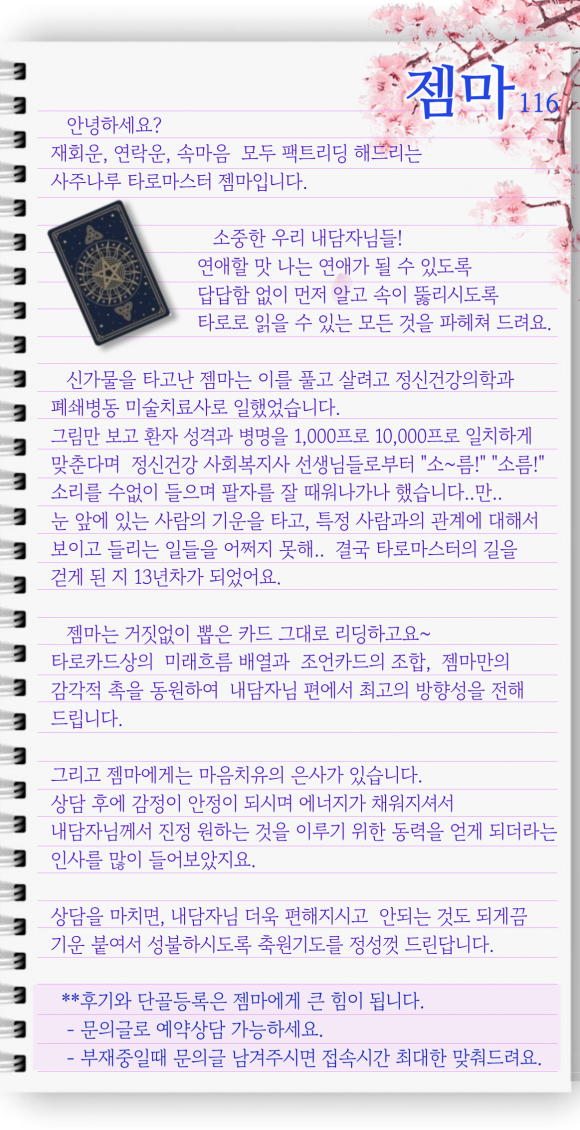 젬마 116
안녕하세요?
재회운, 연락운, 속마음 모두 팩트리딩 해드리는
사주나루 타로마스터 젬마입니다.
소중한 우리 내담자님들!
연애할 맛 나는 연애가 될 수 있도록
답답함 없이 먼저 알고 속이 뚫리시도록
타로로 읽을 수 있는 모든 것을 파헤쳐 드려요.
신가물을 타고난 젬마는 이를 풀고 살려고 정신건강의학과
폐쇄병동 미술치료사로 일했었습니다.
그림만 보고 환자 성격과 병명을 1,000프로 10,000프로 일치하게
맞춘다며 정신건강 사회복지사 선생님들로부터 "소~름!" "소름!"
소리를 수없이 들으며 팔자를 잘 때워나가나 했습니다..만..
눈 앞에 있는 사람의 기운을 타고, 특정 사람과의 관계에 대해서
보이고 들리는 일들을 어쩌지 못해.. 결국 타로마스터의 길을
걷게 된 지 13년차가 되었어요.
젬마는 거짓없이 뽑은 카드 그대로 리딩하고요~
타로카드상의 미래흐름 배열과 조언카드의 조합, 젬마만의
감각적 촉을 동원하여 내담자님 편에서 최고의 방향성을 전해
드립니다.
그리고 젬마에게는 마음치유의 은사가 있습니다.
상담 후에 감정이 안정이 되시며 에너지가 채워지셔서
내담자님께서 진정 원하는 것을 이루기 위한 동력을 얻게 되더라는
인사를 많이 들어보았지요.
상담을 마치면, 내담자님 더욱 편해지시고 안되는 것도 되게끔
기운 붙여서 성불하시도록 축원기도를 정성껏 드린답니다.
**후기와 단골등록은 젬마에게 큰 힘이 됩니다.
- 문의글로 예약상담 가능하세요.
- 부재중일때 문의글 남겨주시면 접속시간 최대한 맞춰드려요.